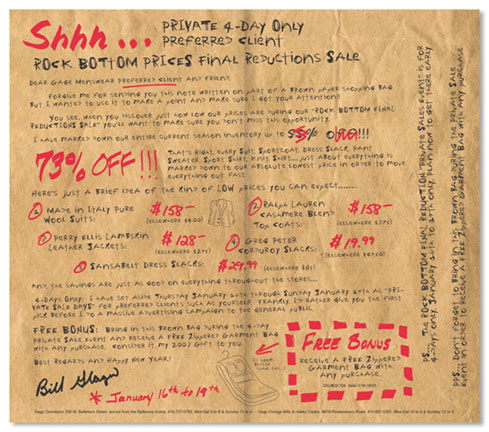 Shhh... PRIVATE 4-DAY ONLY
PREFERRED CLIENT
ROCK BOTTOM PRICES FINAL REDUCTIONS SALE
DEAR GAGE MENSWEAR PREFERRED CLIENT AND FRIEND:
FORGIVE ME FOR SENDING YOU THIS NOTE WRITTEN ON PART OF A BROWN PAPER SHOPPING BAG
BUT I WANTED TO USE IT TO MAKE A POINT AND MAKE SURE I GOT YOUR ATTENTION!
YOU SEE, WHEN YOU DISCOVER JUST HOW LOW OUR PRICES ARE DURING OUR "ROCK BOTTOM FINAL
REDUCTIONS SALE" YOU'LL WANT TO MAKE SURE YOU DON'T MISS THIS OPPORTUNITY.
I HAVE MARKED DOWN OUR ENTIRE CURRENT SEASON INVENTORY UP TO
73% OFF!!!
THAT'S RIGHT, EVERY SUIT, SPORTCOAT, DRESS SLACK, PANT
SWEATER, SPORT SHIRT, KNIT SHIRT...JUST ABOUT EVERYTHING IS
MARKED DOWN TO OUR ABSOLUTE LOWEST PRICE IN ORDER TO MOVE
EVERYTHING OUT FAST.
HERE'S JUST A BRIEF IDEA OF THE KIND OF LOW PRICES YOU CAN EXPECT.......
1 MADE IN ITALY PURE
WOOL SUITS: $158-
(ELSEWHERE
2 RALPH LAUREN
CASHMERE BLEND
TOP COATS: $158-
(ELSEWHERE
3 PERRY ELLIS LAMBSKIN
LEATHER JACKETS: $128-
(ELSEWHERE
4 GREG PETER
CORDUROY SLACKS: $19.99
(ELSEWHERE
5 SANSABELT DRESS SLACKS: $29.99
(ELSEWHERE
AND THE SAVINGS ARE JUST AS GOOD ON EVERYTHING THROUGHOUT THE STORES...
4-DAYS ONLY: I HAVE SET ASIDE THURSDAY JANUARY 16TH THROUGH SUNDAY JANUARY 19TH AS "PRI-
VATE SALE DAYS" FOR PREFERRED CLIENTS SUCH AS YOURSELF. FRANKLY, I'D RATHER GIVE YOU THE FIRST
PICK BEFORE I DO A MASSIVE ADVERTISING CAMPAIGN TO THE GENERAL PUBLIC.
FREE BONUS: BRING IN THIS BROWN BAG DURING THE 4-DAY
PRIVATE SALE EVENT AND RECEIVE A FREE ZIPPERED GARMENT BAG
WITH ANY PURCHASE. CONSIDER IT MY 2003 GIFT TO YOU
BEST REGARDS AND HAPPY NEW YEAR!
Bill Glazer
* JANUARY 16th to 19th
FREE BONUS
RECEIVE A FREE ZIPPERED
GARMENT BAG WITH
ANY PURCHASE.
PS... THE ROCK BOTTOM FINAL REDUCTION PRIVATE SALE EVENT IS FOR
4-DAYS ONLY, JANUARY 16TH TO 19TH ONLY. PLAN NOW TO GET THERE EARLY
PPS... DON'T FORGET TO BRING IN THIS BROWN BAG DURING THE PRIVATE SALE
EVENT IN ORDER TO RECEIVE A FREE ZIPPERED GARMENT BAG WITH ANY PURCHASE